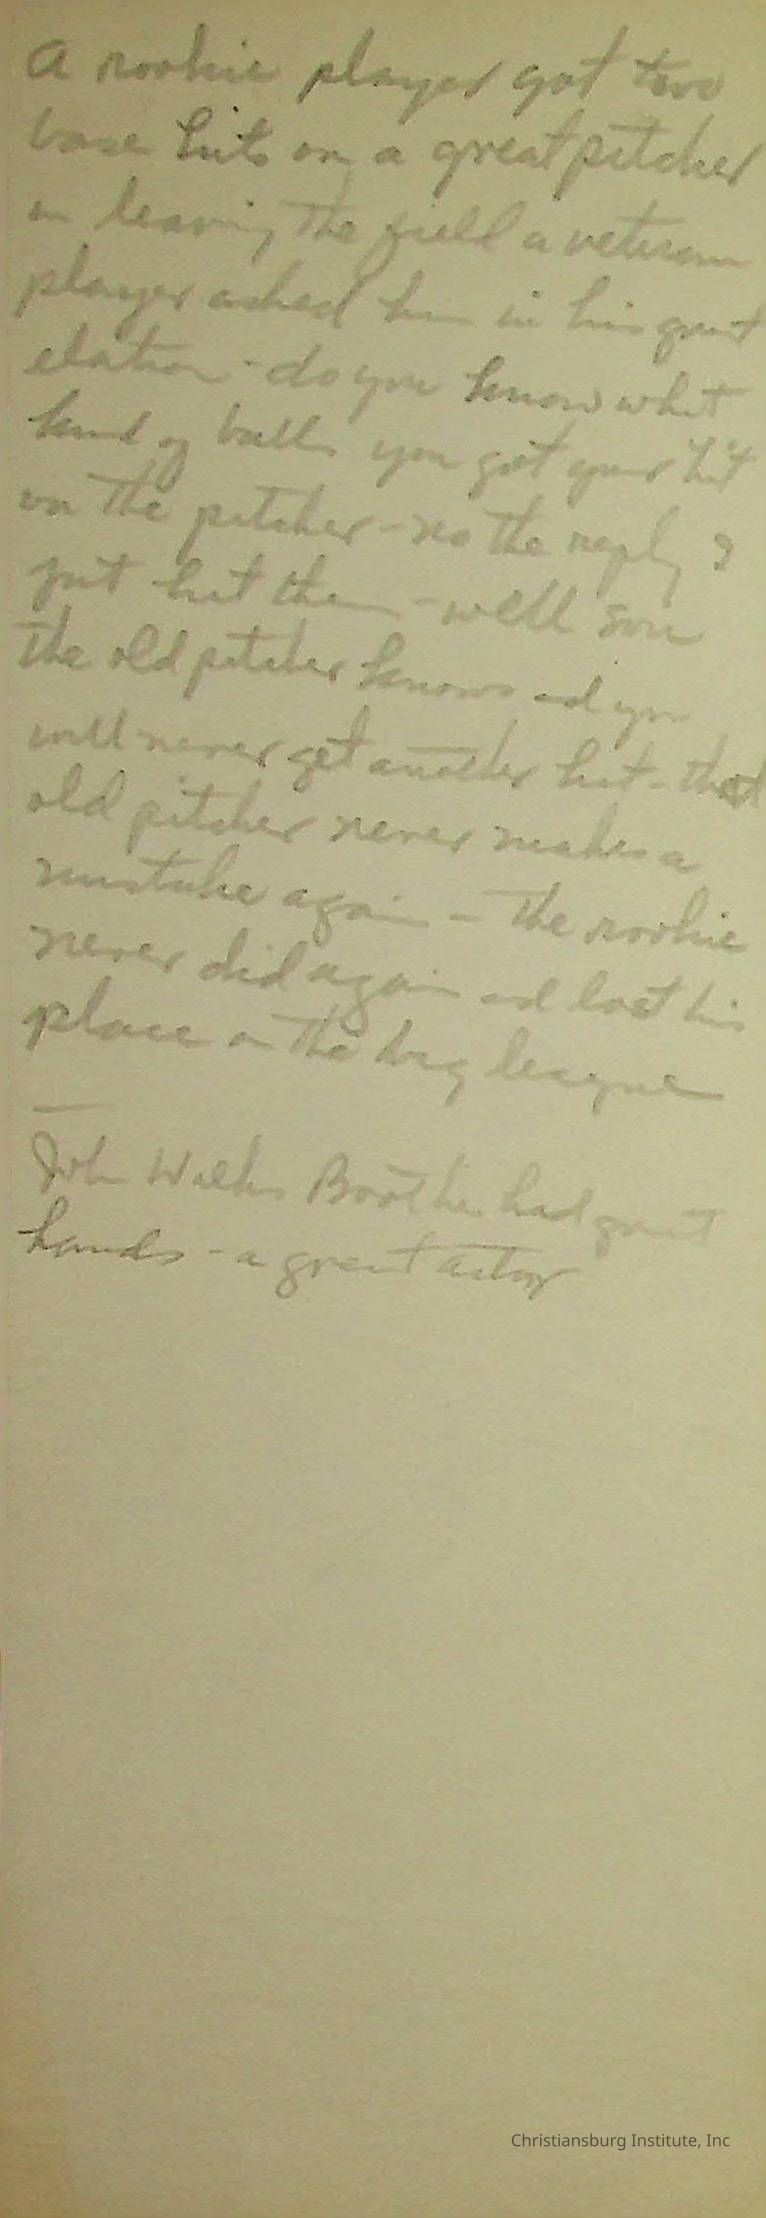 A rookie player got two
base hits on a great pitcher
in leaving the field a veteran
player asked him in his great
elation - do you know what
kind of balls you got your hit
on the pitcher - no the reply I
just hit them - well son
the old pitcher knows and you
will never get another hit - that
old pitcher never makes a
mistake again - the rookie
never did again and lost his
place in the big league
John Wilkes Boothe had great
hands - a great actor
Christiansburg Institute, Inc